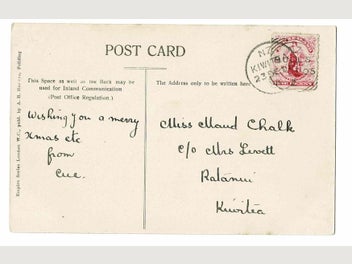 POST CARD
This Space as well as the Back may be
used for Inland Communication
(Post Office Regulation.)
The Address only to be written here
Wishing you a merry
Xmas etc
from
Eue.
Miss Maud Chalk
c/o Mrs Levett
Ratanui
Kiwitea
Empire Series London W.C., publ. by A. B. Feilding